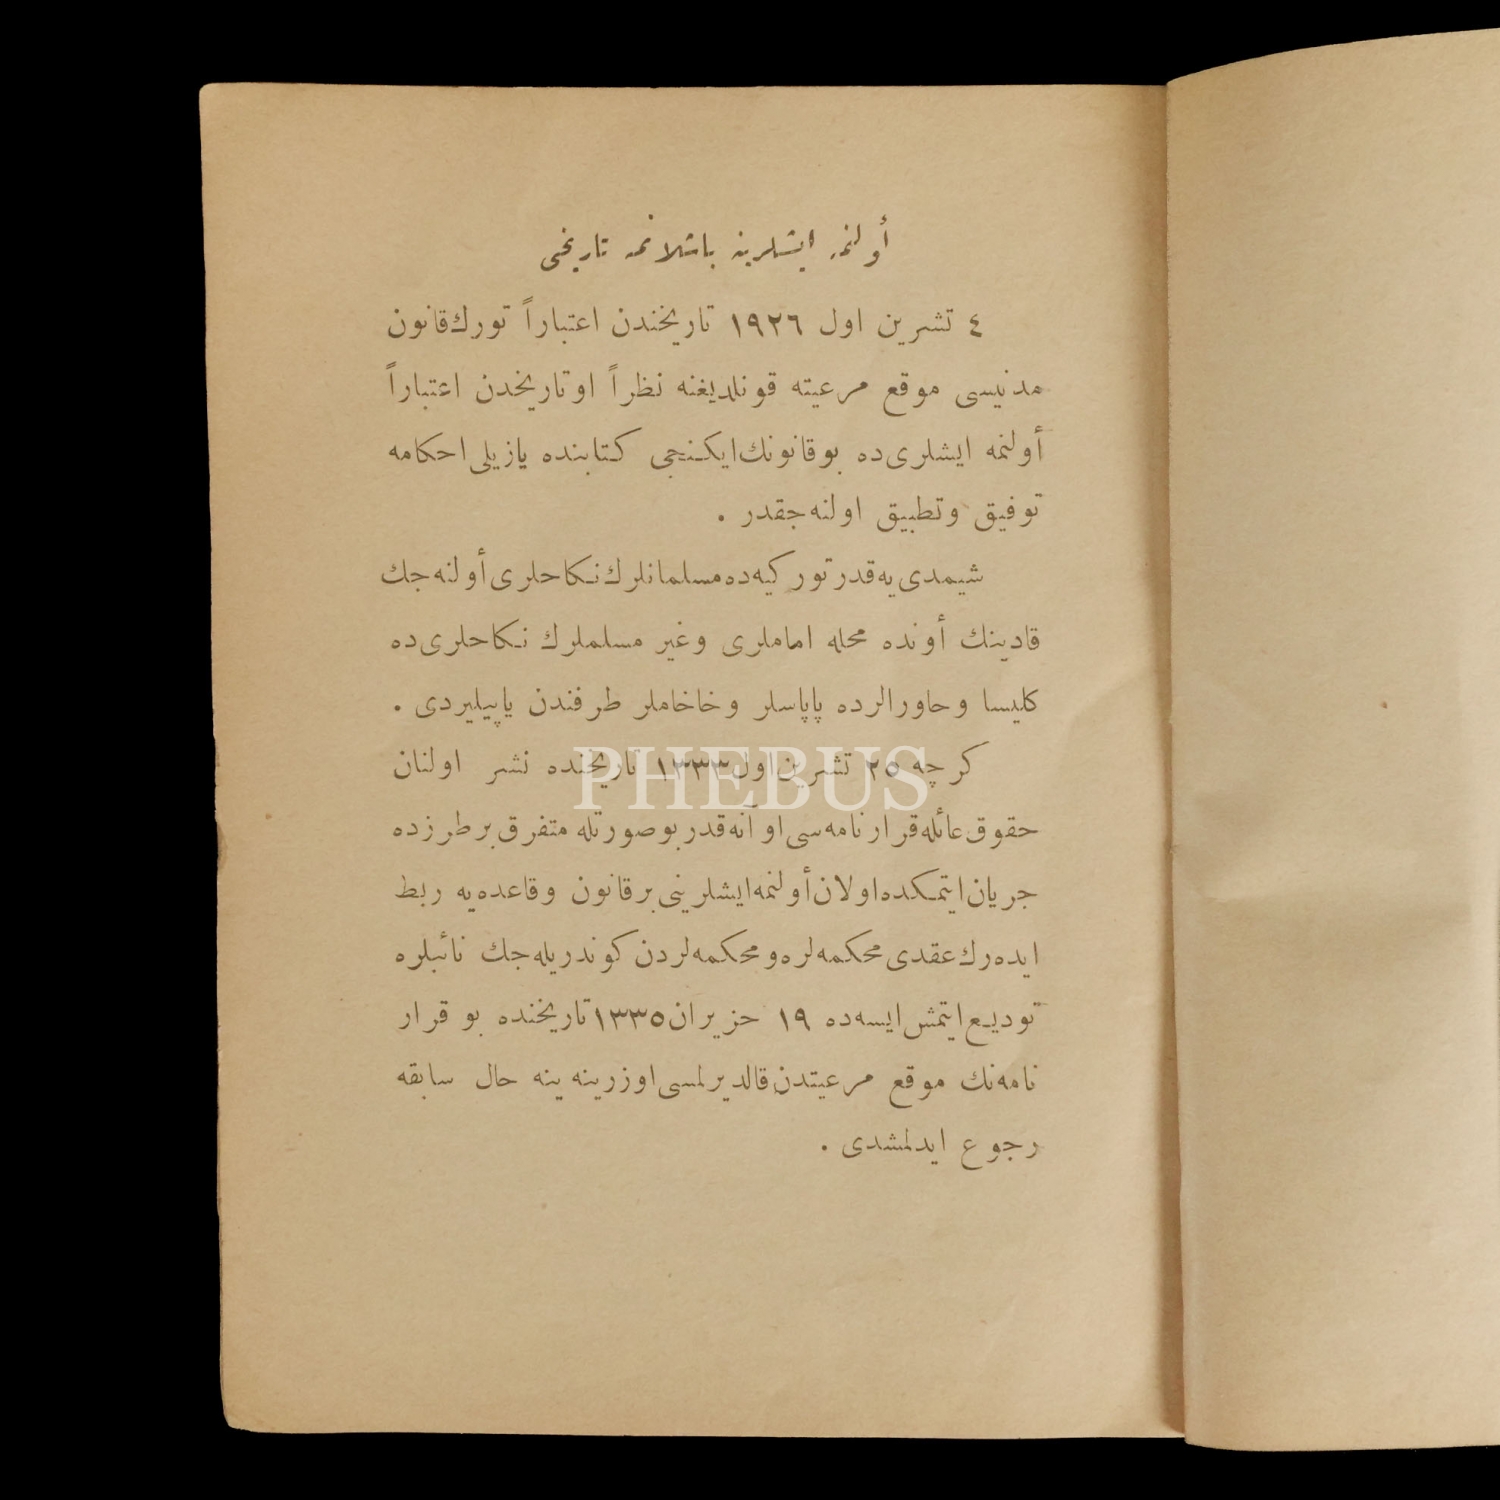 أولنمه ايشلرينه باشلانمه تاريخى
٤ تشرين اول ١٩٢٦ تاريخندن اعتباراً تورك قانون
مدنيسى موقع مرعيته قونلديغنه نظراً او تاريخدن اعتباراً
أولنمه ايشلرى ده بو قانونك ايكنجى كتابنده يازيلى احكامه
توفيق وتطبيق اولنه جقدر .
شيمدى يه قدر توركيه ده مسلمانلرك نكاحلرى أولنه جك
قادينك أونده محله اماملرى وغير مسلملرك نكاحلرى ده
كليسا وحاورالرده پاپاسلر وخاخاملر طرفندن ياپيليردى .
كرچه ٢٥ تشرين اول ١٣٣٣ تاريخنده نشر اولنان
حقوق عائله قرارنامه سى او آنه قدر بو صورتله متفرق بر طرزده
جريان ايتمكده اولان أولنمه ايشلرينى بر قانون وقاعده يه ربط
ايده رك عقدى محكمه لره و محكمه لردن كوندريله جك نائبلره
توديع ايتمش ايسه ده ١٩ حزيران ١٣٣٥ تاريخنده بو قرار
نامه نك موقع مرعيتدن قالديرلمسى اوزرينه ينه حال سابقه
رجوع ايدلمشدى .
PHEBUS